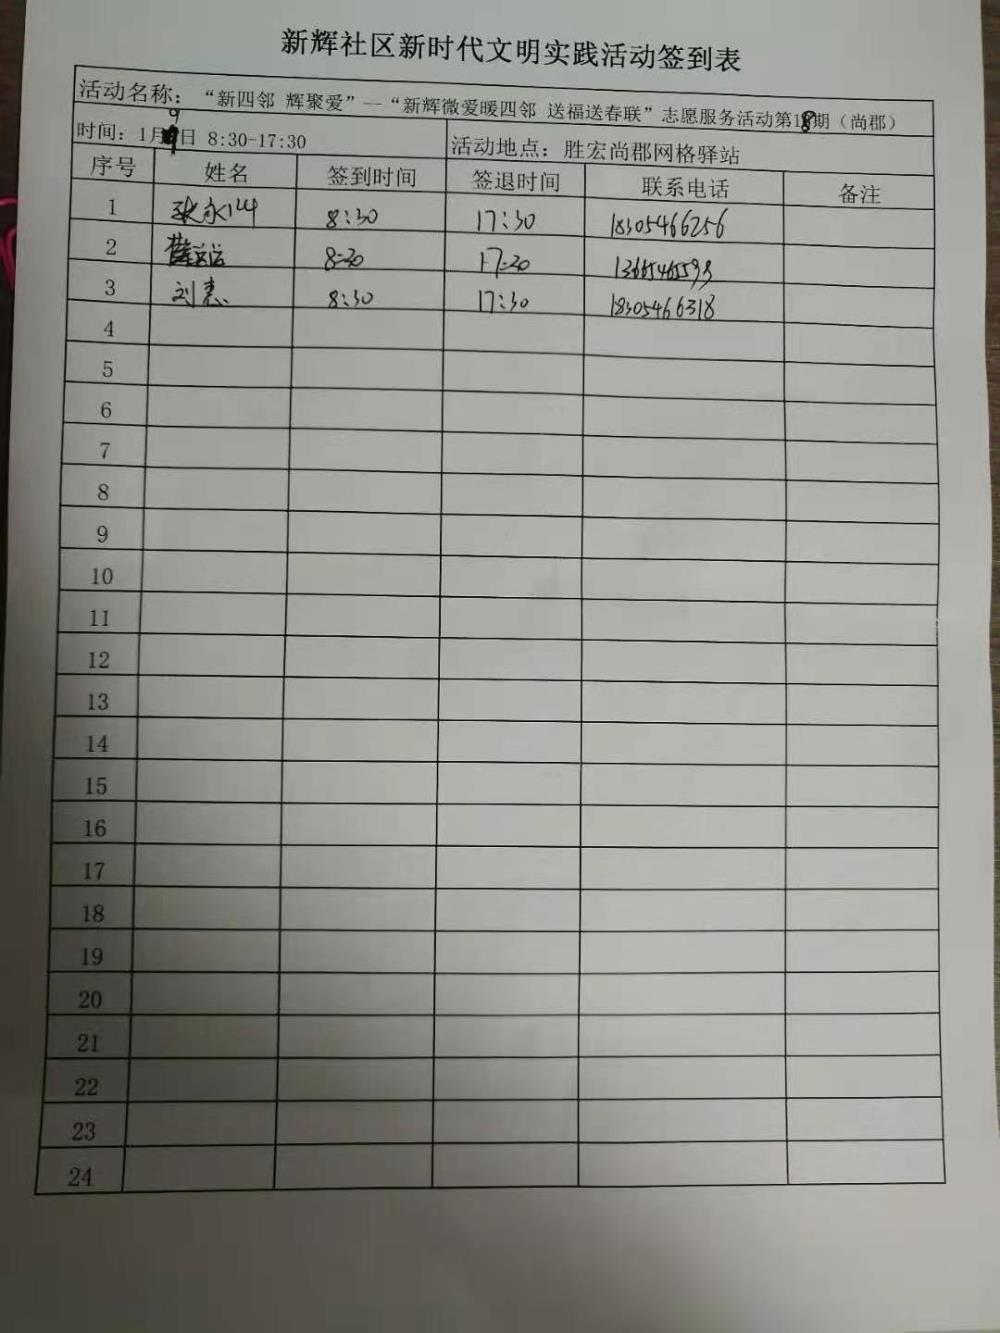 新辉社区新时代文明实践活动签到表
活动名称：“新四邻 辉聚爱”--“新辉微爱暖四邻 送福送春联”志愿服务活动第18期（尚郡）
时间：1月9日 8:30-17:30 活动地点：胜宏尚郡网格驿站
序号 姓名 签到时间 签退时间 联系电话 备注
1 8:30 17:30 18305466256
2 8:30 17:30
3 刘惠 8:30 17:30 18305466318
4
5
6
7
8
9
10
11
12
13
14
15
16
17
18
19
20
21
22
23
24